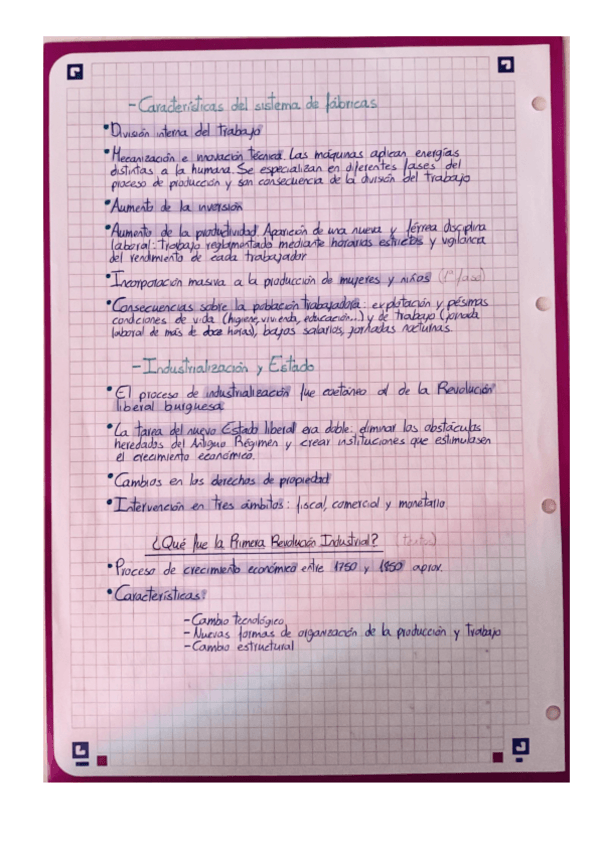 - Características del sistema de fábricas
• División interna del trabajo
• Mecanización e innovación técnica. Las máquinas aplican energías
distintas a la humana. Se especializan en diferentes fases del
proceso de producción y son consecuencia de la división del trabajo
• Aumento de la inversión
• Aumento de la productividad. Aparición de una nueva y férrea disciplina
laboral: trabajo reglamentado mediante horarios estrictos y vigilancia
del rendimiento de cada trabajador
• Incorporación masiva a la producción de mujeres y niños (1ª fase)
• Consecuencias sobre la población trabajadora: explotación y pésimas
condiciones de vida (higiene, vivienda, educación...) y de trabajo (jornada
laboral de más de doce horas), bajos salarios, jornadas nocturnas.
- Industrialización y Estado
• El proceso de industrialización fue coetáneo al de la Revolución
liberal burguesa
• La tarea del nuevo Estado liberal era doble: eliminar los obstáculos
heredados del Antiguo Régimen y crear instituciones que estimulasen
el crecimiento económico.
• Cambios en los derechos de propiedad
• Intervención en tres ámbitos: fiscal, comercial y monetario
¿Qué fue la Primera Revolución Industrial? (texto)
• Proceso de crecimiento económico entre 1750 y 1850 aprox.
• Características:
- Cambio tecnológico
- Nuevas formas de organización de la producción y trabajo
- Cambio estructural